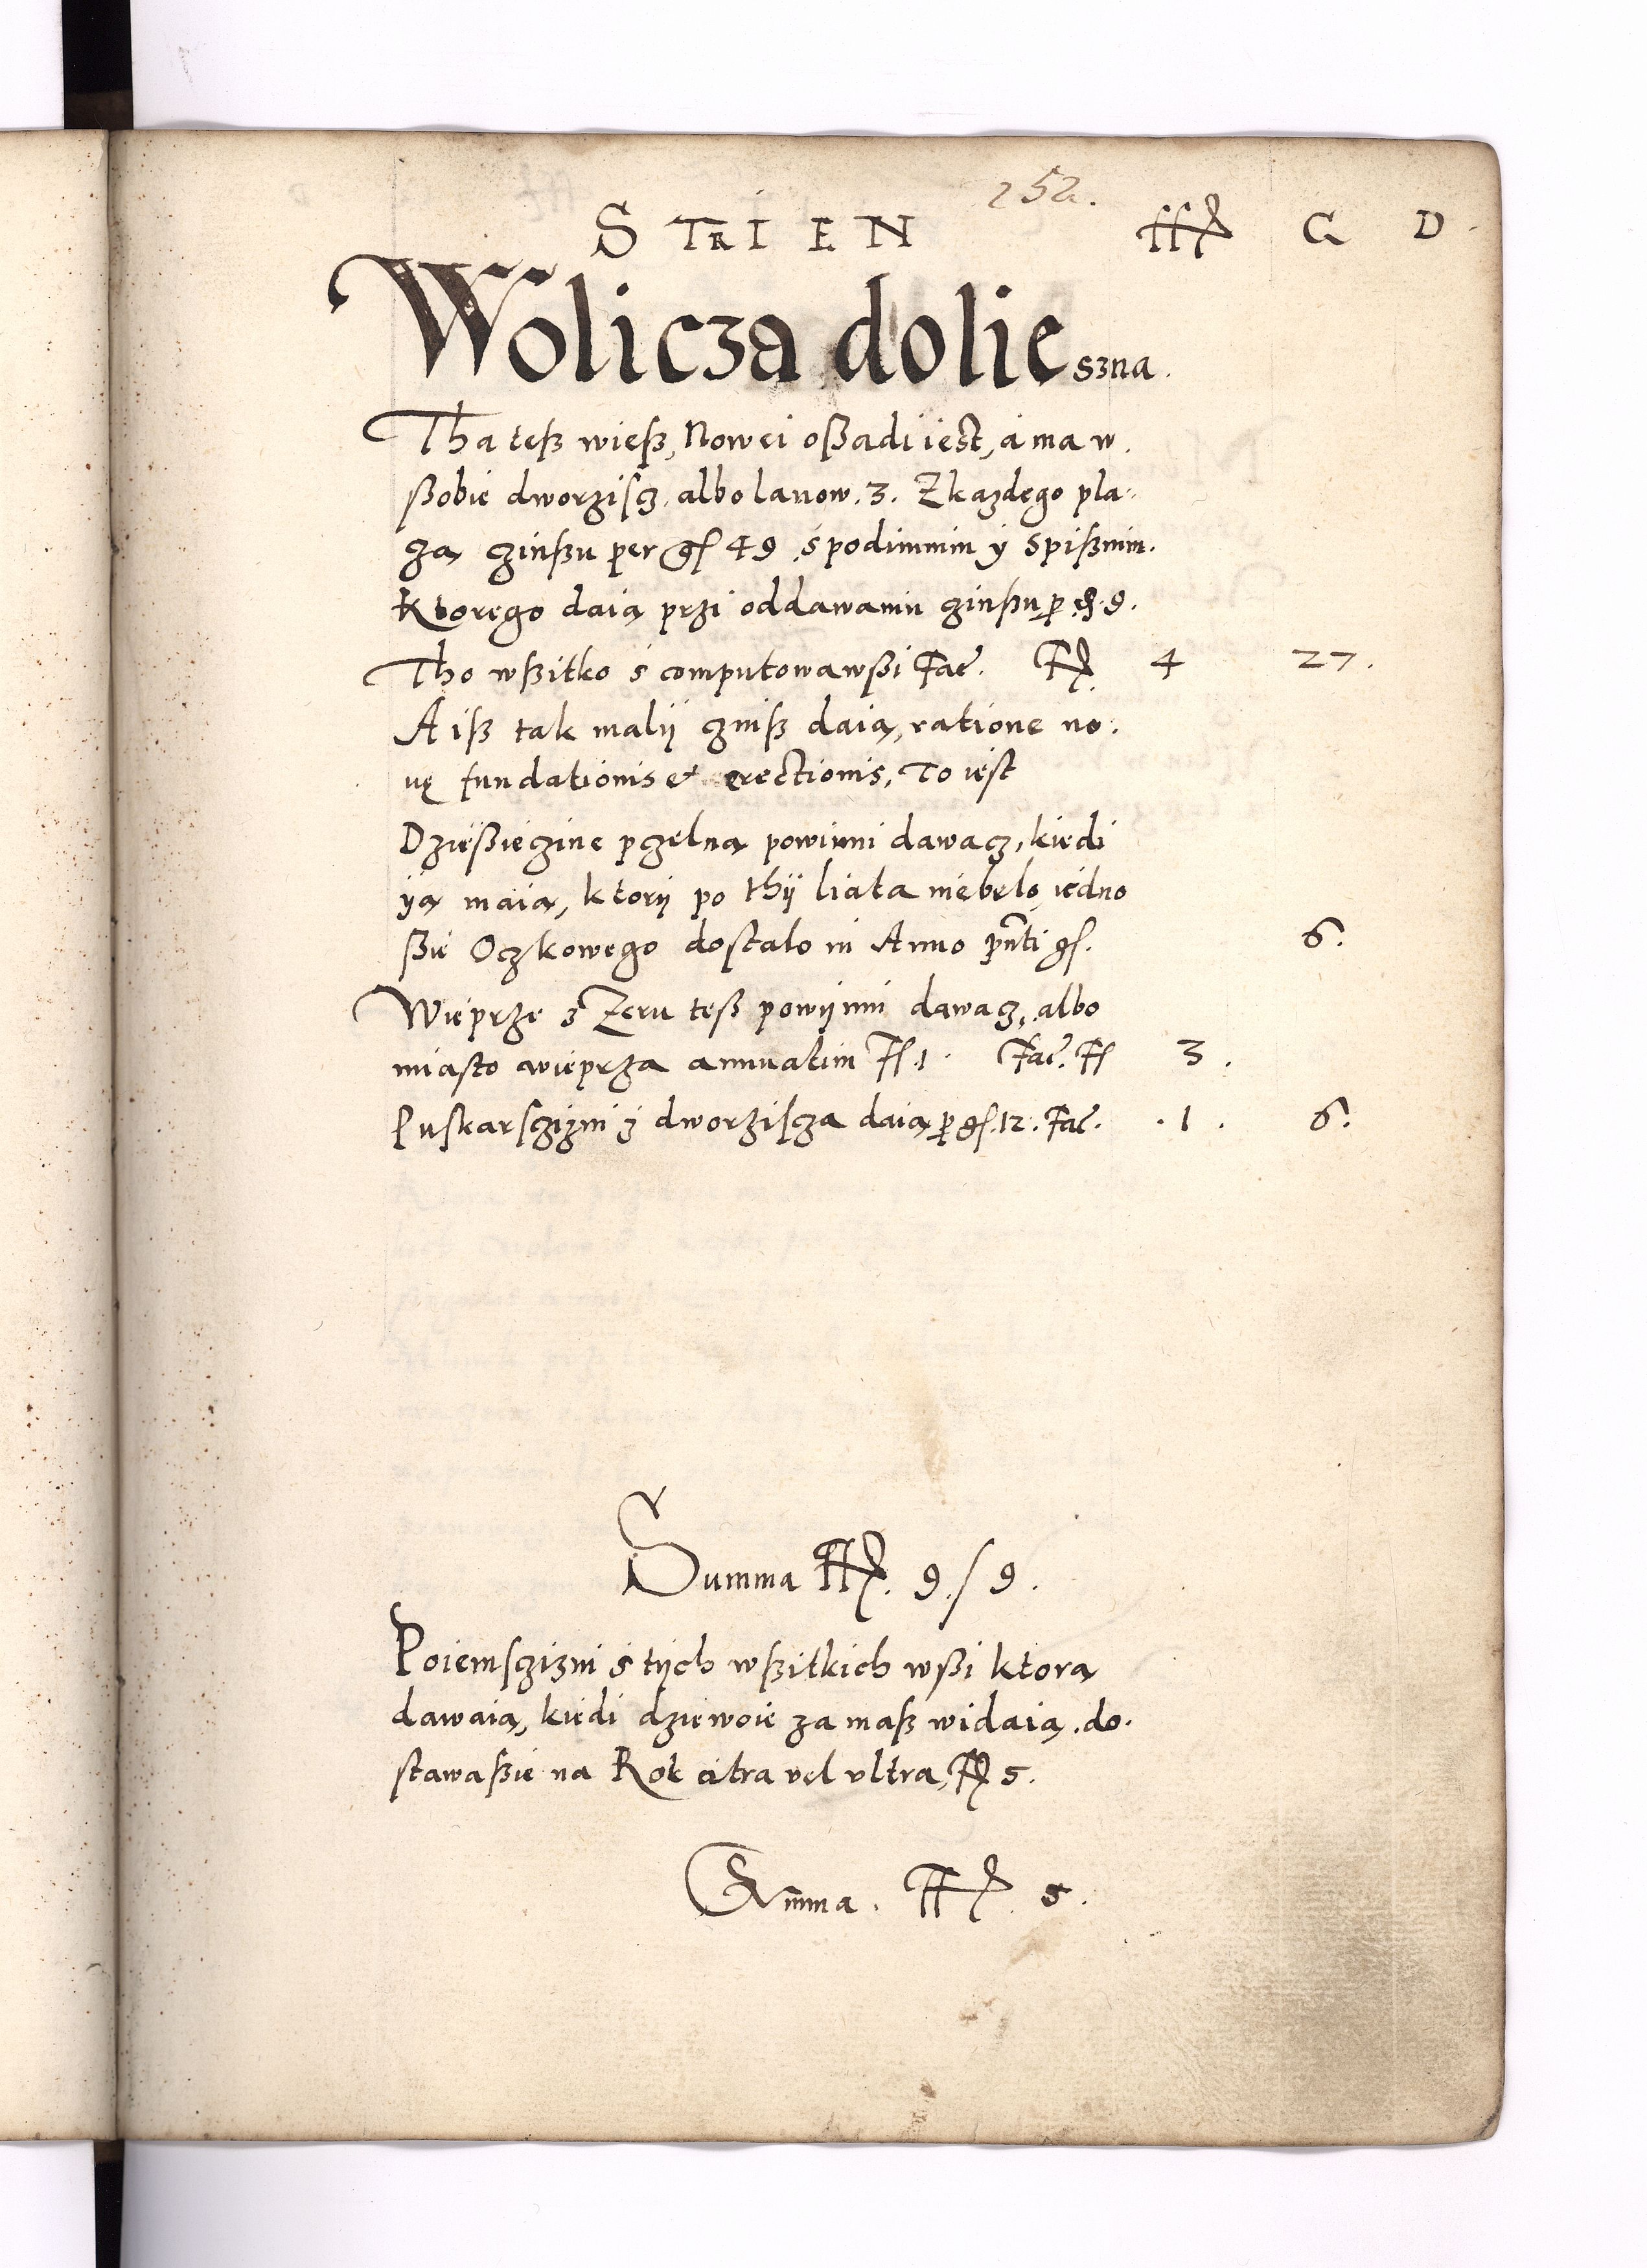 252.
STRIEN ff G D.
Wolicza dolieszna.
Tha teß wieß, Nowei oßadi iest, a ma w.
ßobie dworziscz, albo lanow. 3. Zkazdego pla-
cza czinßu per gſ 49 s podimnim y spißnim.
Ktorego daią przi oddawaniu czinßu p gſ. 9.
Tho wßitko s computowawßi Fac. ff 4 27.
A iß tak malij czinß daią, ratione no.
uę fundationis et erectionis, To iest
Dzießieczine pczelną powinni dawacz, kiedi
ią maią, ktorij po thij liata niebelo, iedno
ßie Oczkowego dostalo in Anno pnti gſ. 6.
Wieprze z Zeru teß powijnni dawacz, albo
miasto wieprza annuatim ff. 1. Fac. ff 3.
Puskarsczizni z dworziscza daią p gſ. 12. Fac. 1. 6.
Summa ff. 9 / 9.
Poiemsczizni s tijch wßitkich wßi ktorą
dawaią, kiedi dziewoie za maß widaią, do.
stawa ßie na Rok citra vel vltra, ff 5.
Summa. ff. 5.